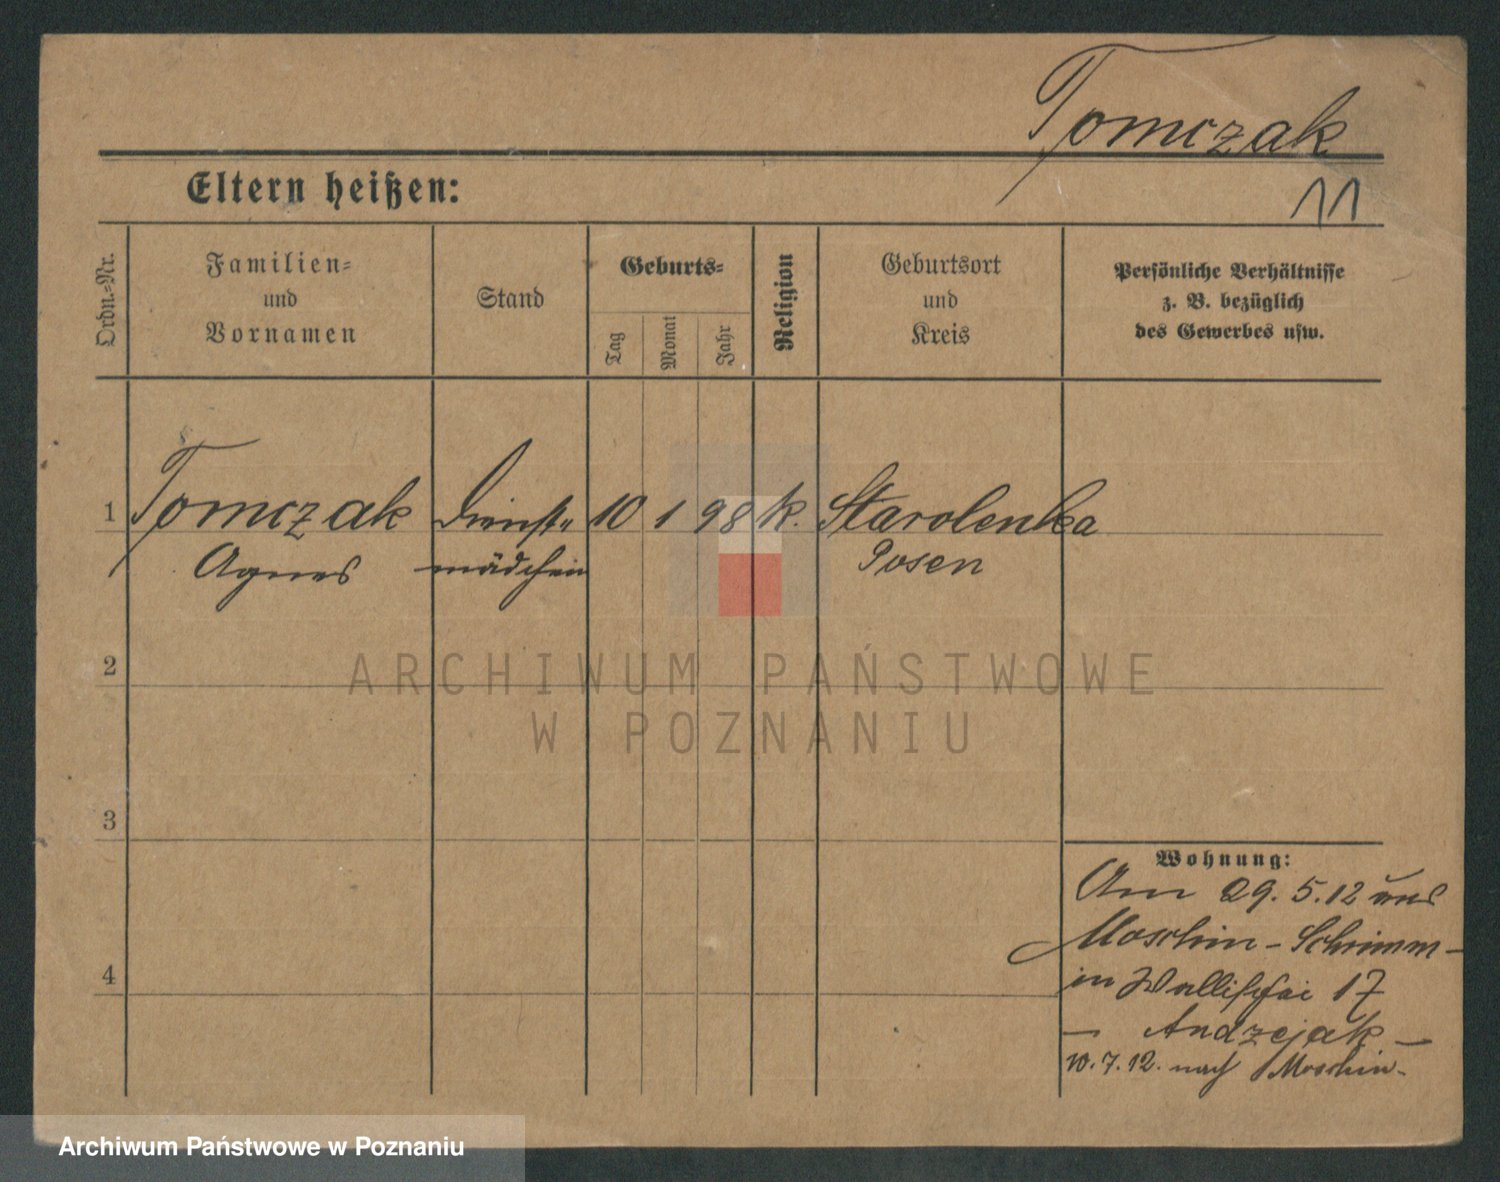 Tomczak
Eltern heißen:
11
Ordn.-Nr.
Familien-
und
Vornamen
Stand
Geburts-
Tag
Monat
Jahr
Religion
Geburtsort
und
Kreis
Persönliche Verhältnisse
z. B. bezüglich
des Gewerbes usw.
1 Tomczak Dienst- 10 1 98 k. Starolenka
Agnes mädchen Posen
2
ARCHIWUM PAŃSTWOWE
W POZNANIU
3
Wohnung:
Am 29. 5. 12 aus
Moschin - Schrimm -
in Wallischei 17
4
- Andzejak -
10. 7. 12. nach Moschin -
Archiwum Państwowe w Poznaniu